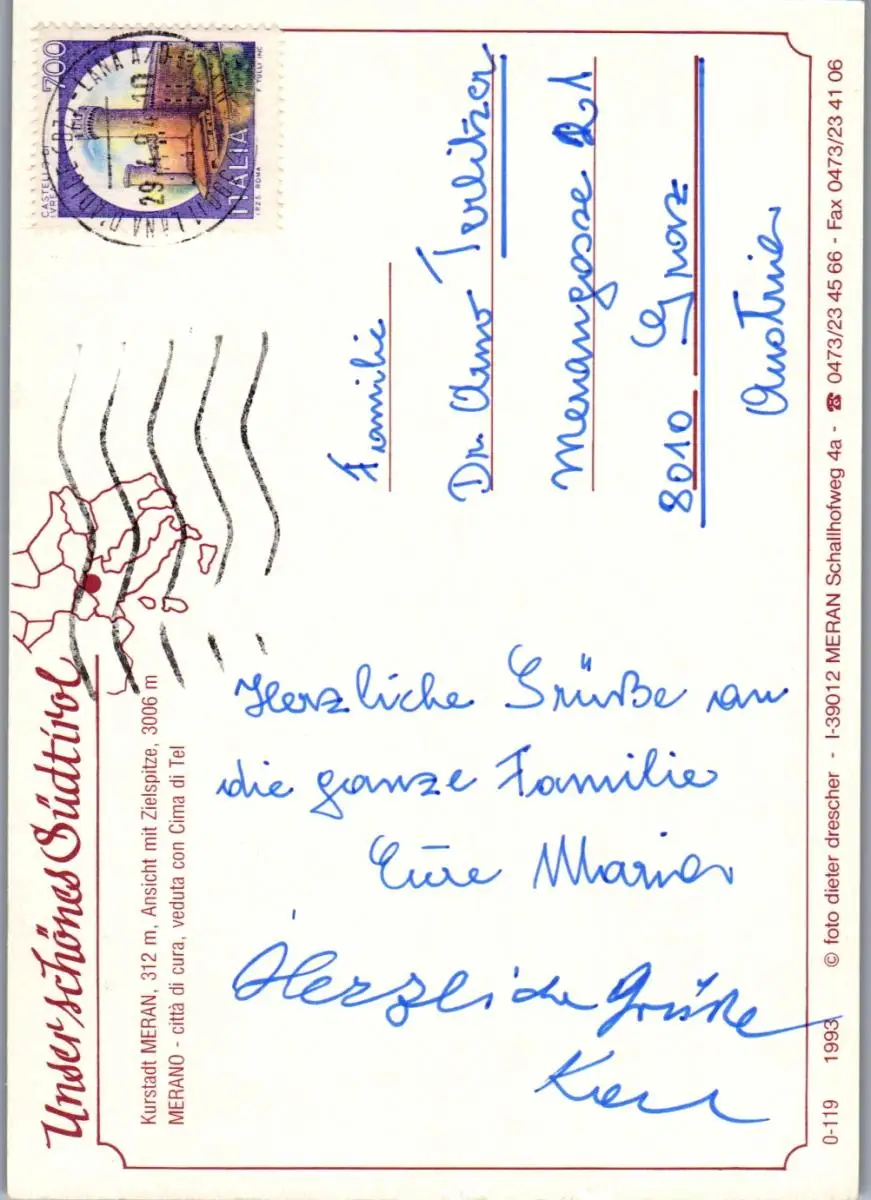 Unser schönes Südtirol
Kurstadt MERAN, 312 m, Ansicht mit Zielspitze, 3006 m
MERANO - città di cura, veduta con Cima di Tel
Herzliche Grüße an
die ganze Familie
Eure Maria
Herzliche Grüße
Karl
700
CASTELLO DI
IVREA
ITALIA
F. TULLI INC.
I.P.Z.S. ROMA
LANA
29
Familie
Dr. Arno Terlitzer
Merangasse 21
8010 Graz
Austria
0-119 1993 © foto dieter drescher - I-39012 MERAN Schallhofweg 4a - ☎ 0473/23 45 66 - Fax 0473/23 41 06